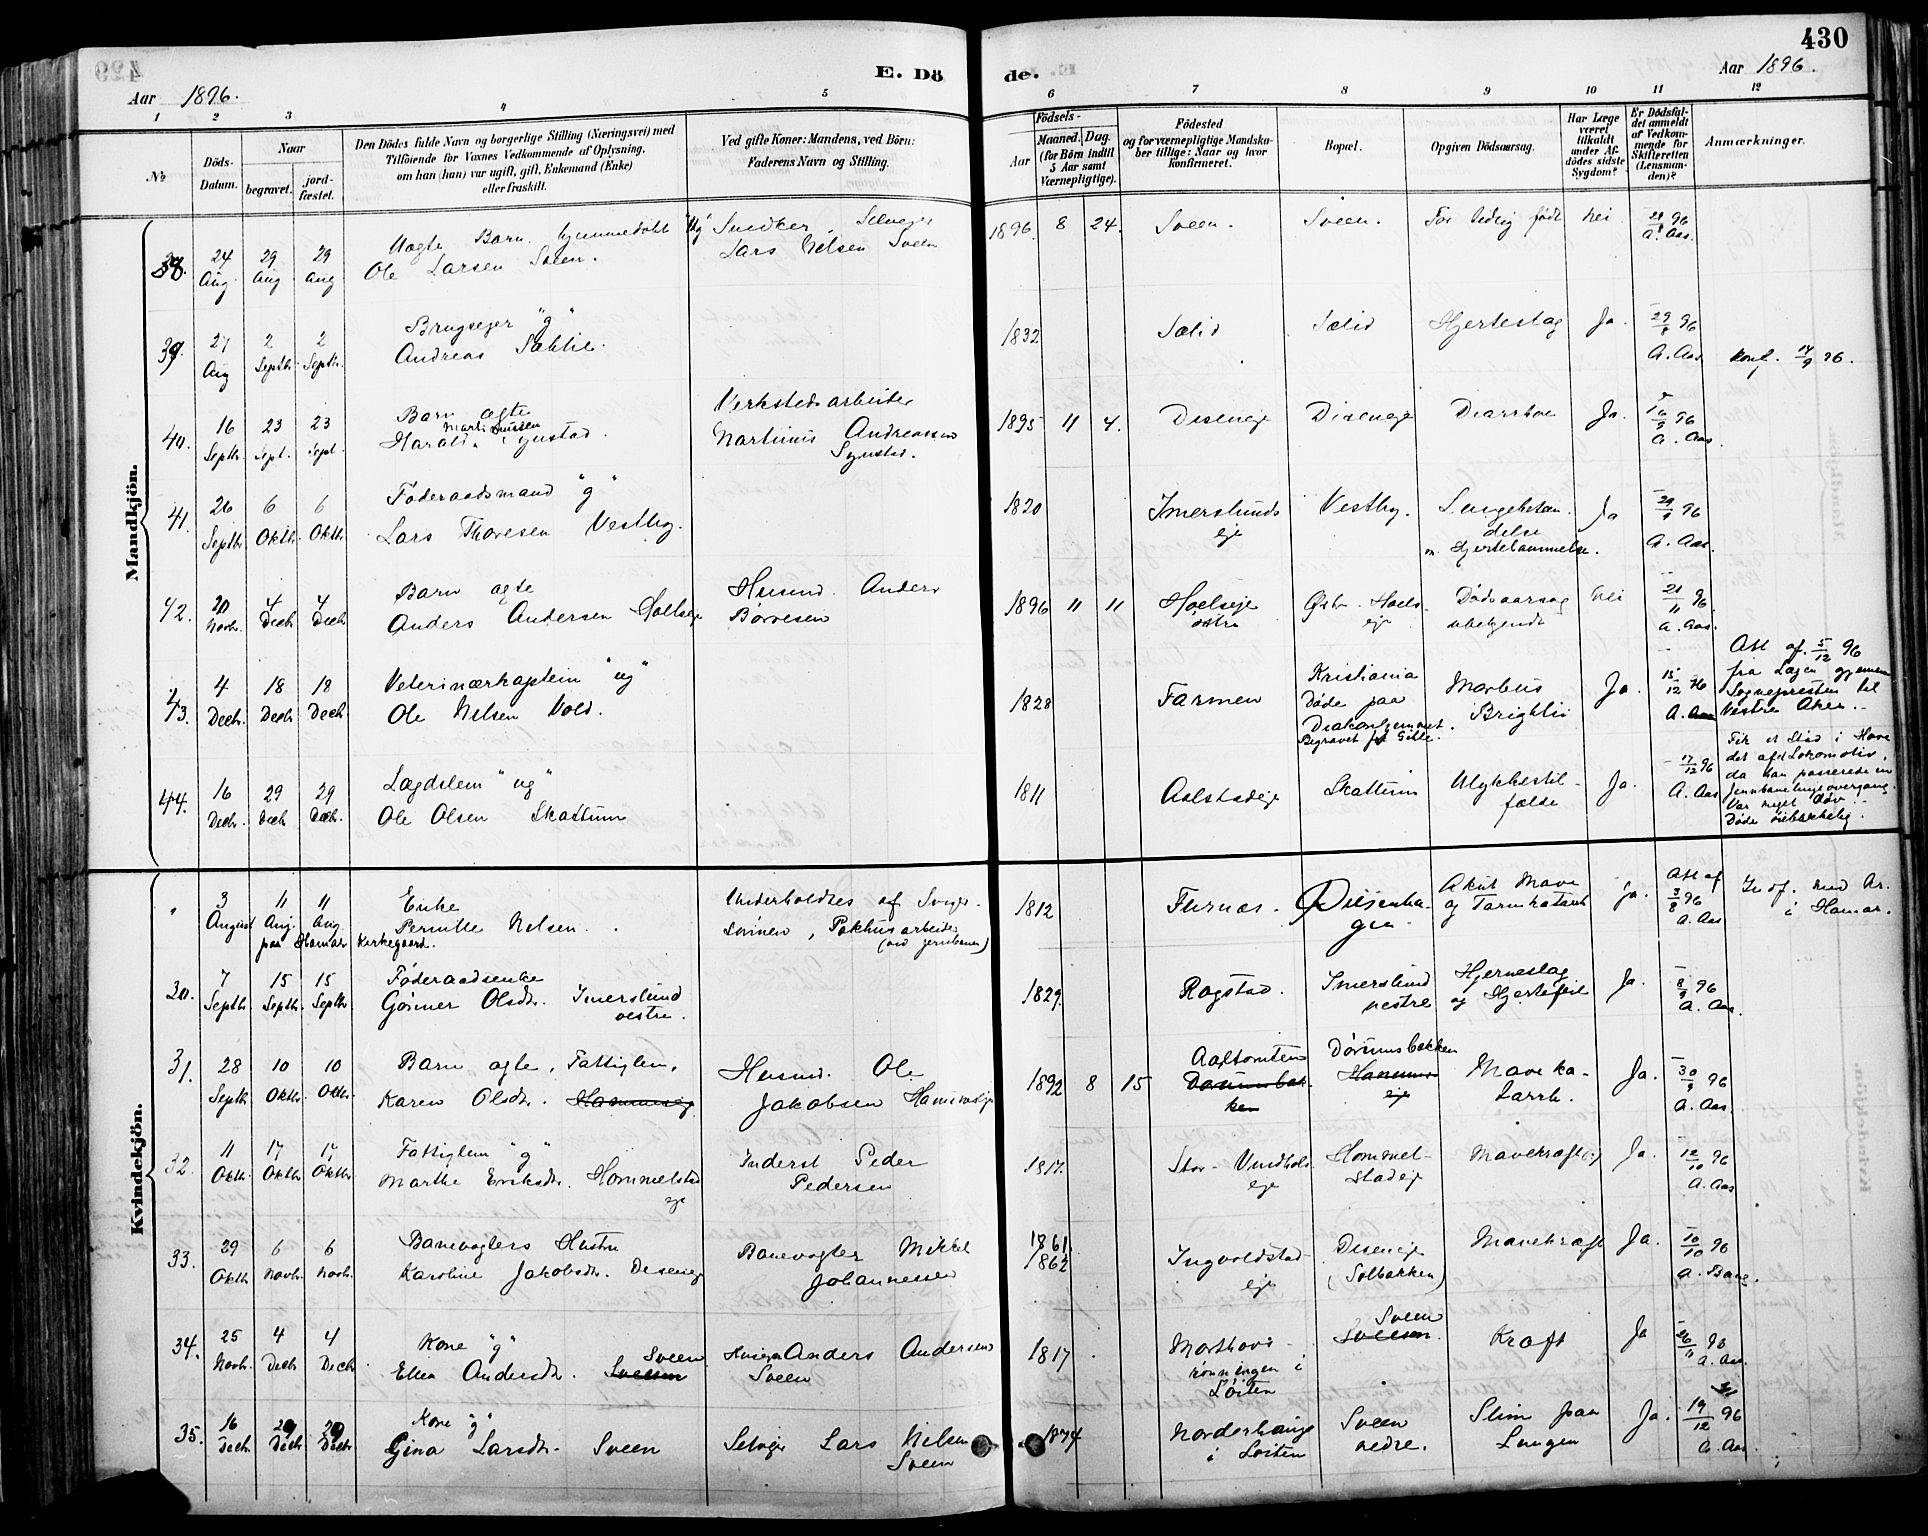 430
E. Dö
de.
Aar 1896.
Aar 1896.
1 2 3 4 5 6 7 8 9 10 11 12
№
Döds-Datum.
Naar
begravet.
jord-fæstet.
Den Dödes fulde Navn og borgerlige Stilling (Næringsvei) med
Tilföiende for Voxnes Vedkommende af Oplysning,
om han (hun) var ugift, gift, Enkemand (Enke)
eller fraskilt.
Ved gifte Koner: Mandens, ved Börn:
Faderens Navn og Stilling.
Födsels-
Aar
Maaned. Dag.
(for Börn indtil
5 Aar samt
Værnepligtige).
Födested
og for værnepligtige Mandska-
ber tillige: Naar og hvor
konfirmeret.
Bopæl.
Opgiven Dödsaarsag.
Har Læge
været
tilkaldt
under Af-
dödes sidste
Sygdom?
Er Dödsfal-
det anmeldt
af Vedkom-
mende for
Skifteretten
(Lensman-
den)?
Anmærkninger.
Mandkjön.
38. 24 Aug. 29 Aug 29 Aug
Uægte Barn hjemmedöbt
Ole Larsen Sveen.
Snedker, Selveier
Lars Nelsen Sveen
1896. 8 24. Sveen. Sveen. For tidlig födt Nei 28/8 96 A. Aas.
39. 27 Aug 2 Septbr. 2 Septbr.
Brugseier "g"
Andreas Sælid.
1832 Sælid Sælid Hjerteslag Ja. 29/8 96 A. Aas
17/9 96.
40. 16 Septbr. 23 Sept. 23 Sept.
Barn ægte
Harald Martinussen Synstad.
Verkstedsarbeider
Martinus Andreassen
Synstad.
1895 11 4. Diseneie Diseneie Diarrhoe Ja. 16/9 96 A. Aas.
41. 26 Septbr. 6 Oktbr. 6 Oktbr.
Föderaadsmand "g"
Lars Thoresen Vestby.
1820 Imerslunds
eie
Vestby. Lungebetæn-
delse
Hjertelammelse.
Ja 29/9 96 A. Aas.
42. 20 Novbr. 4 Decbr. 4 Decbr.
Barn ægte
Anders Andersen Hoelseie
Husmd. Anders
Börresen
1896 11 11 Hoelseie
östre
Östre Hoels-
eie
Dödsaarsag
ubekjendt
Nei 21/11 96. A. Aas.
43. 4 Decbr. 18 Decbr. 18 Decbr.
Veterinærkaptein "ug"
Ole Nelsen Vold.
1828 Farmen
Kristiania
Döde paa
Diakonhjemmet.
Begravet
Morbus
Brightii
Ja. 15/12 96 A. Aas
Att af. 5/12 96
fra Lægen gjennem
Sognepresten til
Vestre Aker.
44. 16 Decbr. 29 Decbr. 29 Decbr.
Lægdslem "ug"
Ole Olsen Skattum
1811 Aalstadeie Skattum Ulykkestil-
fælde
Ja. 17/12 96 A. Aas
Fik et Stöd i Hove
det af et Lokomotiv,
da han passerede en
Jernbanelinjeovergang.
Var meget döv.
Döde öieblikkelig.
Kvindekjön.
" 3 August 11 Aug. 11 Aug.
paa Hamar Kirkegaard.
Enke
Pernille Nelsen.
Underholdtes af Sviger-
sönnen, Pakhusarbeider
(ved jernbanen)
1812 Furnæs. Disenha-
gen
Akut Mave
og Tarmkatarrh
ja. Att af 3/8 96 A. Aas
Indf. med No.
i Hamar.
30. 7 Septbr. 15 Septbr. 15 Septbr.
Föderaadsenke
Görner Olsdtr. Imerslund
vestre.
1829. Rogstad. Imerslund
vestre
Hjerneslag
og Hjertefeil
Ja. 8/9 96 A. Aas.
31. 28 Septbr. 10 Oktbr. 10 Oktbr.
Barn ægte, Fattiglem,
Karen Olsdtr.
Husmd. Ole
Jakobsen
1892 8 15 Aaltomten
Dörumsbakken
Maveka-
tarrh.
Ja. 30/9 96 A. Aas.
32. 11 Oktbr. 17 Oktbr. 17 Oktbr.
Fattiglem "g"
Marthe Eriksdtr. Hommelstad
eie
Inderst Peder
Pedersen
1817. Stor-
eie
Hommel-
stadeie
Mavekræft Ja. 12/10 96 A. Aas
33. 29 Oktbr. 6 Novbr. 6 Novbr.
Banevogters Hustru
Karoline Jakobsdtr. Diseneie
Banevogter Mikkel
Johannessen
1861.
1862
Ingvoldstad-
eie
Diseneie
(Solbakken)
Mavekræft Ja. 10/10 96
34. 25 Novbr. 4 Decbr. 4 Decbr.
Kone "g"
Ellen Andersdtr. Sveen
Anders Andersen
Sveen
1817
rönningen i
Löiten
Sveen
Kræft Ja 26/11 96 A. Aas.
35. 16 Decbr. 29 Decbr. 29 Decbr.
Kone "g"
Gina Larsdtr. Sveen
Selveier Lars Nelsen
Sveen
1874 Norderhauge
i Löiten
Sveen
nedre.
Slim paa
Lungen
Ja. 19/12 96 A. Aas.